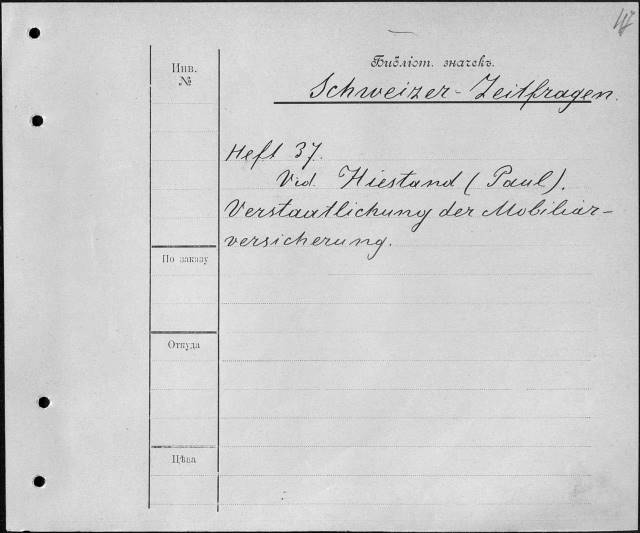 Библіот. значекъ.
Инв.
№
Schweizer-Zeitfragen.
Heft 37.
Vid. Hiestand (Paul).
Verstaatlichung der Mobiliar-
versicherung.
По заказу
Откуда
Цѣна